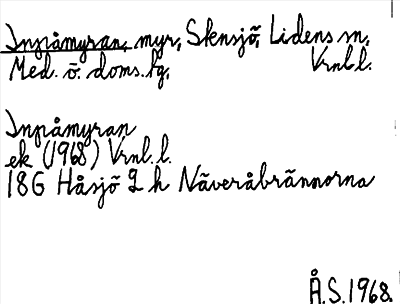 Inpåmyran, myr, Skensjö, Lidens sn,
Med. ö. doms. fg, Vrnl.l.
Inpåmyran
ek (1968) Vrnl. l.
18G Håsjö 2 h Näveråbrännorna
Å.S. 1968.